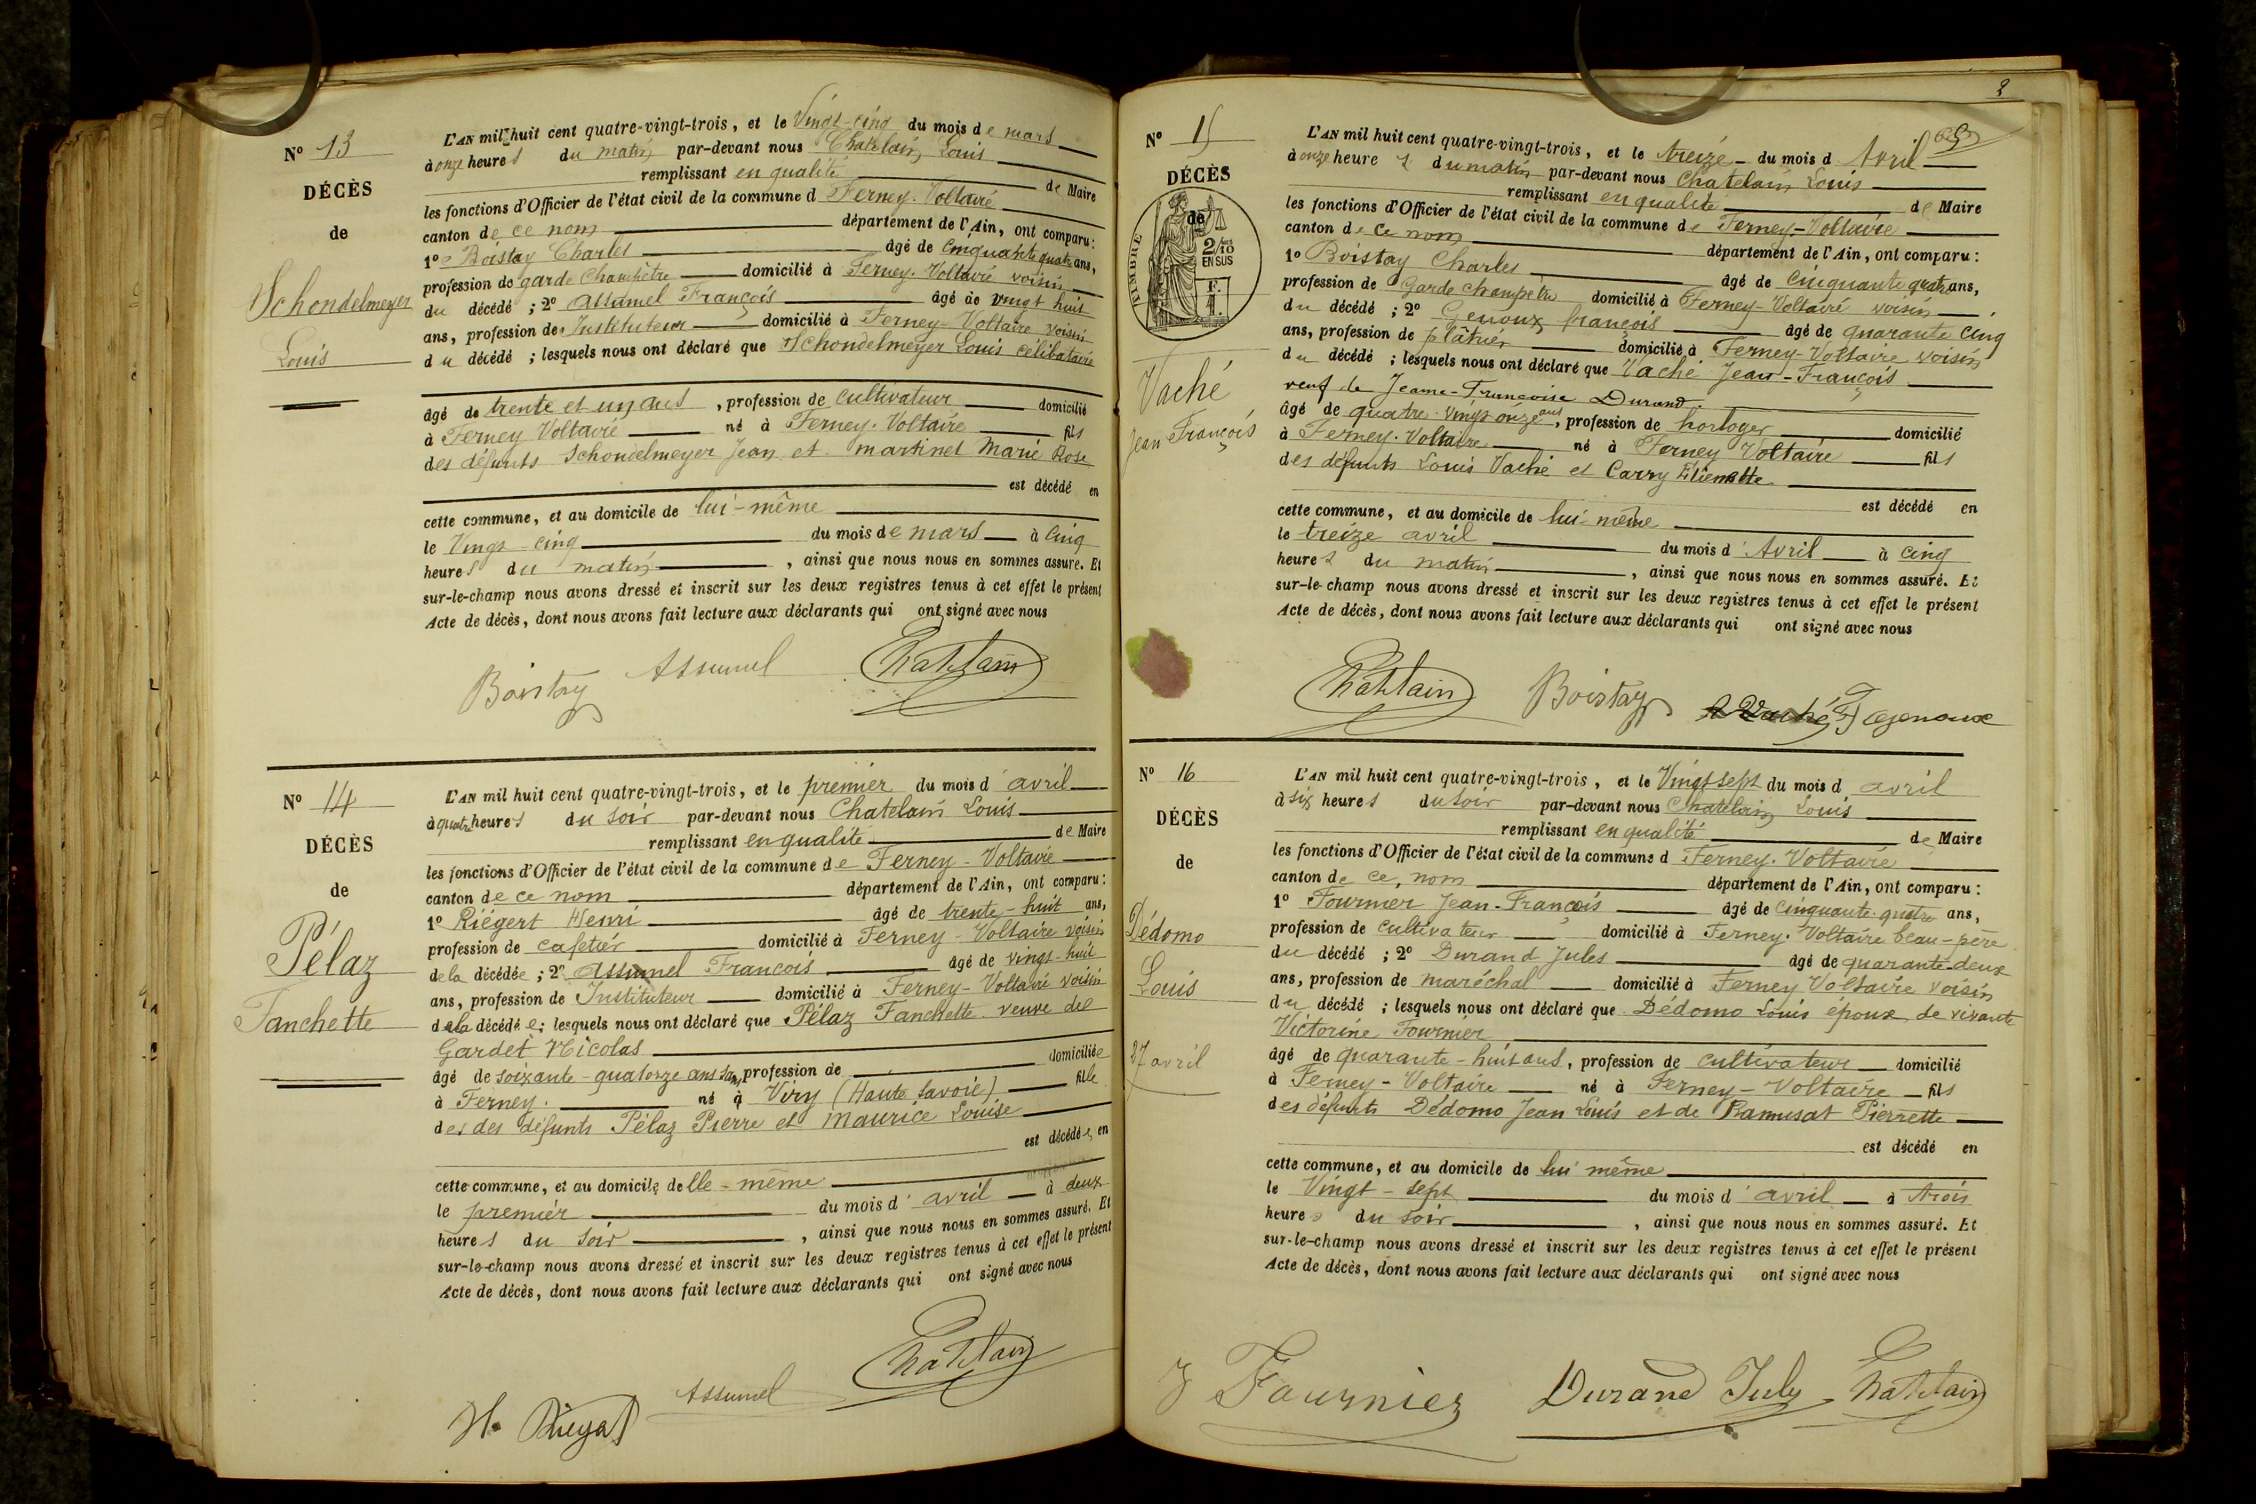 N° 13
DÉCÈS
de
Schondelmeyer
Louis
L'AN mil huit cent quatre-vingt-trois, et le Vingt-cinq du mois de mars
à onze heures du matin par-devant nous Chatelain Louis
remplissant en qualité de Maire
les fonctions d'Officier de l'état civil de la commune d Ferney-Voltaire
canton de ce nom département de l'Ain, ont comparu :
1° Boistay Charles âgé de cinquante quatre ans,
profession de garde champêtre domicilié à Ferney-Voltaire voisin
du décédé ; 2° Assumel François âgé de vingt huit
ans, profession de Instituteur domicilié à Ferney-Voltaire voisin
du décédé ; lesquels nous ont déclaré que Schondelmeyer Louis célibataire
âgé de trente et un ans, profession de cultivateur domicilié
à Ferney Voltaire né à Ferney-Voltaire fils
des défunts Schondelmeyer Jean et martinet Marie Rose
est décédé en
cette commune, et au domicile de lui-même
le Vingt-cinq du mois de mars à cinq
heures du matin, ainsi que nous nous en sommes assuré. Et
sur-le-champ nous avons dressé et inscrit sur les deux registres tenus à cet effet le présent
Acte de décès, dont nous avons fait lecture aux déclarants qui ont signé avec nous
Boistay Assumel Chatelain
N° 14
DÉCÈS
de
Pélaz
Fanchette
L'AN mil huit cent quatre-vingt-trois, et le premier du mois d'avril
à quatre heures du soir par-devant nous Chatelain Louis
remplissant en qualité de Maire
les fonctions d'Officier de l'état civil de la commune de Ferney-Voltaire
canton de ce nom département de l'Ain, ont comparu :
1° Riégert Henri âgé de trente-huit ans,
profession de cafetier domicilié à Ferney-Voltaire voisin
de la décédée ; 2° Assumel François âgé de vingt-huit
ans, profession de Instituteur domicilié à Ferney-Voltaire voisin
de la décédée ; lesquels nous ont déclaré que Pélaz Fanchette veuve de
Gardet Nicolas
âgé de soixante-quatorze ans sans profession de domiciliée
à Ferney né à Viry (Haute Savoie) fille
des des défunts Pélaz Pierre et Maurice Louise
est décédée en
cette commune, et au domicile de lle-même
le premier du mois d'avril à deux
heures du soir, ainsi que nous nous en sommes assuré. Et
sur-le-champ nous avons dressé et inscrit sur les deux registres tenus à cet effet le présent
Acte de décès, dont nous avons fait lecture aux déclarants qui ont signé avec nous
H. Riegert Assumel Chatelain
2
N° 15
DÉCÈS
de
TIMBRE
2/10
EN SUS
F.
Vaché
Jean François
L'AN mil huit cent quatre-vingt-trois, et le treize du mois d Avril
à onze heures du matin par-devant nous Chatelain Louis
remplissant en qualité de Maire
les fonctions d'Officier de l'état civil de la commune de Ferney-Voltaire
canton de ce nom département de l'Ain, ont comparu :
1° Boistay Charles âgé de cinquante quatre ans,
profession de Garde champêtre domicilié à Ferney-Voltaire voisin
du décédé ; 2° Genoux françois âgé de quarante cinq
ans, profession de plâtrier domicilié à Ferney-Voltaire voisin
du décédé ; lesquels nous ont déclaré que Vaché Jean-François
veuf de Jeanne-Françoise Durand.
âgé de quatre-vingt onze ans, profession de horloger domicilié
à Ferney-Voltaire né à Ferney Voltaire fils
des défunts Louis Vaché et Carry Etiennette
est décédé en
cette commune, et au domicile de lui-même
le treize avril du mois d'Avril à cinq
heures du matin, ainsi que nous nous en sommes assuré. Et
sur-le-champ nous avons dressé et inscrit sur les deux registres tenus à cet effet le présent
Acte de décès, dont nous avons fait lecture aux déclarants qui ont signé avec nous
Chatelain Boistay Vaché F Genoux
N° 16
DÉCÈS
de
Dédomo
Louis
27 avril
L'AN mil huit cent quatre-vingt-trois, et le Vingt-sept du mois d avril
à six heures du soir par-devant nous Chatelain Louis
remplissant en qualité de Maire
les fonctions d'Officier de l'état civil de la commune d Ferney-Voltaire
canton de ce nom département de l'Ain, ont comparu :
1° Fournier Jean-François âgé de cinquante-quatre ans,
profession de cultivateur domicilié à Ferney-Voltaire beau-père
du décédé ; 2° Durand Jules âgé de quarante-deux
ans, profession de maréchal domicilié à Ferney Voltaire voisin
du décédé ; lesquels nous ont déclaré que Dédomo Louis époux de vivante
Victorine Fournier
âgé de quarante-huit ans, profession de cultivateur domicilié
à Ferney-Voltaire né à Ferney-Voltaire fils
des défunts Dédomo Jean Louis et de Ramusat Pierrette
est décédé en
cette commune, et au domicile de lui même
le Vingt-sept du mois d'avril à trois
heures du soir, ainsi que nous nous en sommes assuré. Et
sur-le-champ nous avons dressé et inscrit sur les deux registres tenus à cet effet le présent
Acte de décès, dont nous avons fait lecture aux déclarants qui ont signé avec nous
J Fournier Durand July Chatelain